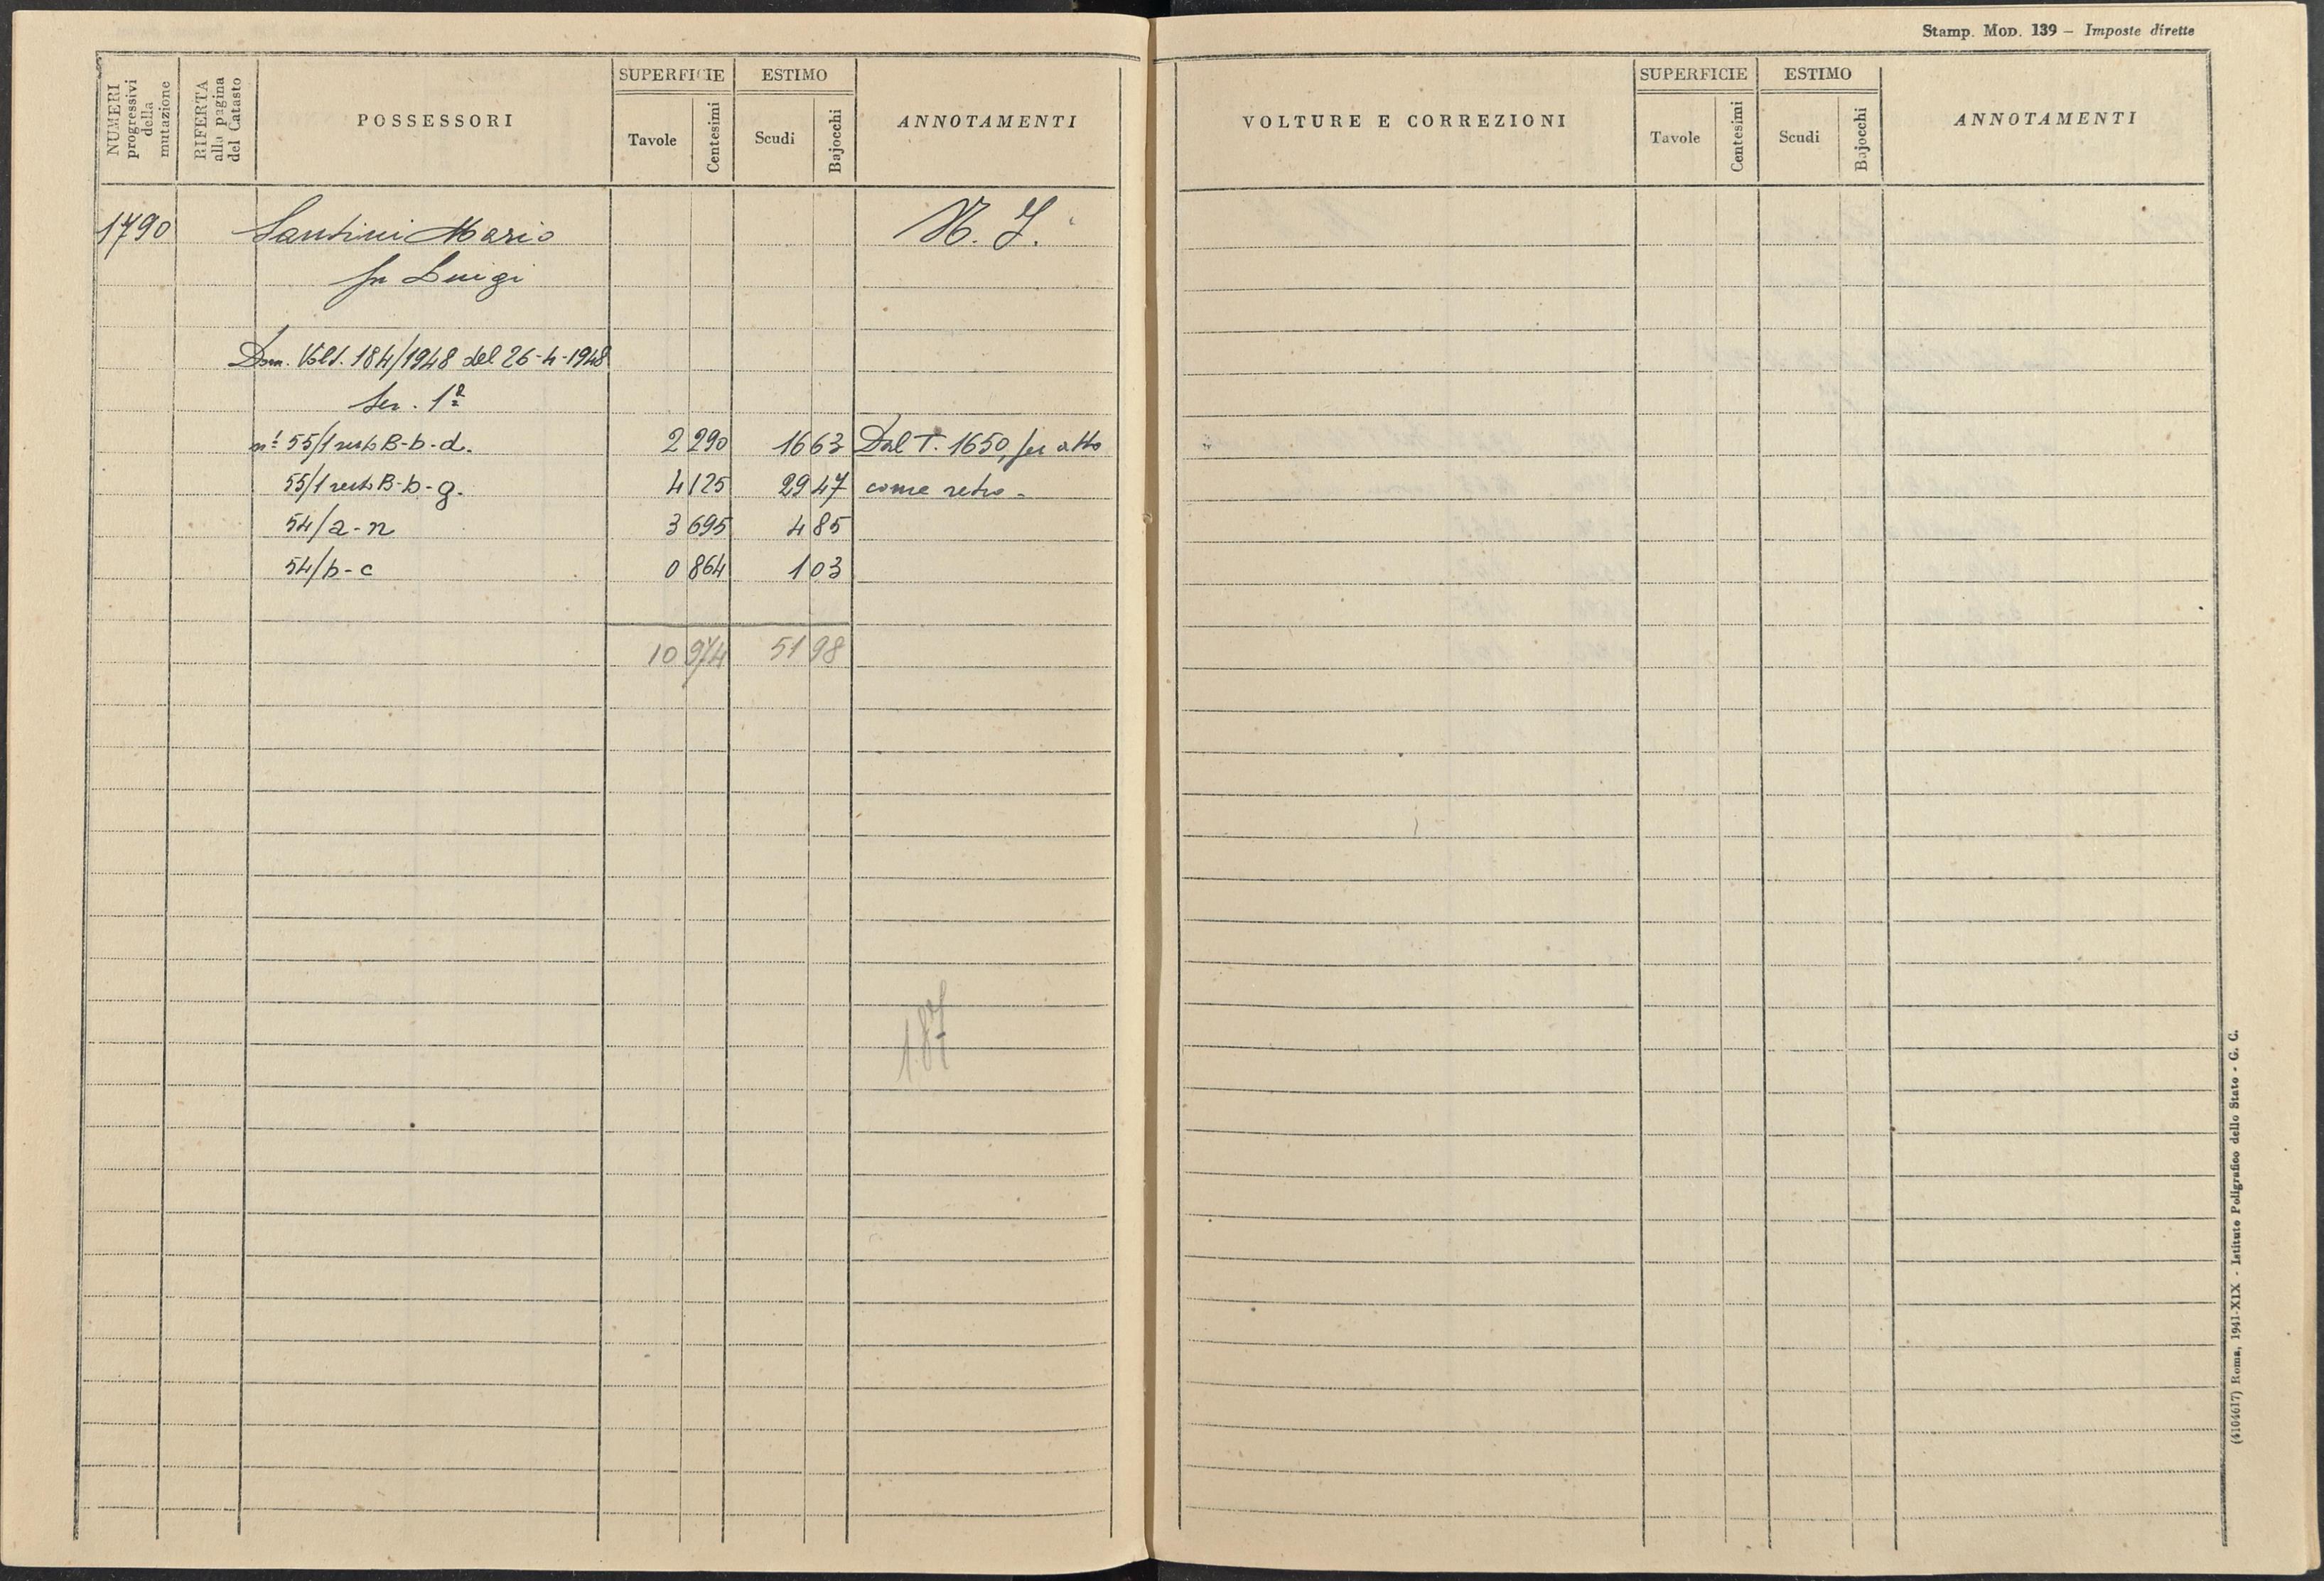 NUMERI progressivi della mutazione
RIFERTA alla pagina del Catasto
POSSESSORI
SUPERFICIE
Tavole
Centesimi
ESTIMO
Scudi
Bajocchi
ANNOTAMENTI
1790 Santini Mario
fu Luigi
Dom. Volt. 184/1948 del 26-4-1948
Ser. 1ª
nⁱ 55/1 resto B-b-d. 2 290 16 63 Dal T. 1650, per atto
55/1 resto B-b-g. 4 125 29 47 come retro-
54/a-n 3 695 4 85
54/b-c 0 864 1 03
10 974 51 98
187
Stamp. Mod. 139 – Imposte dirette
VOLTURE E CORREZIONI
SUPERFICIE
Tavole
Centesimi
ESTIMO
Scudi
Bajocchi
ANNOTAMENTI
(4104617) Roma, 1941-XIX - Istituto Poligrafico dello Stato - G. C.